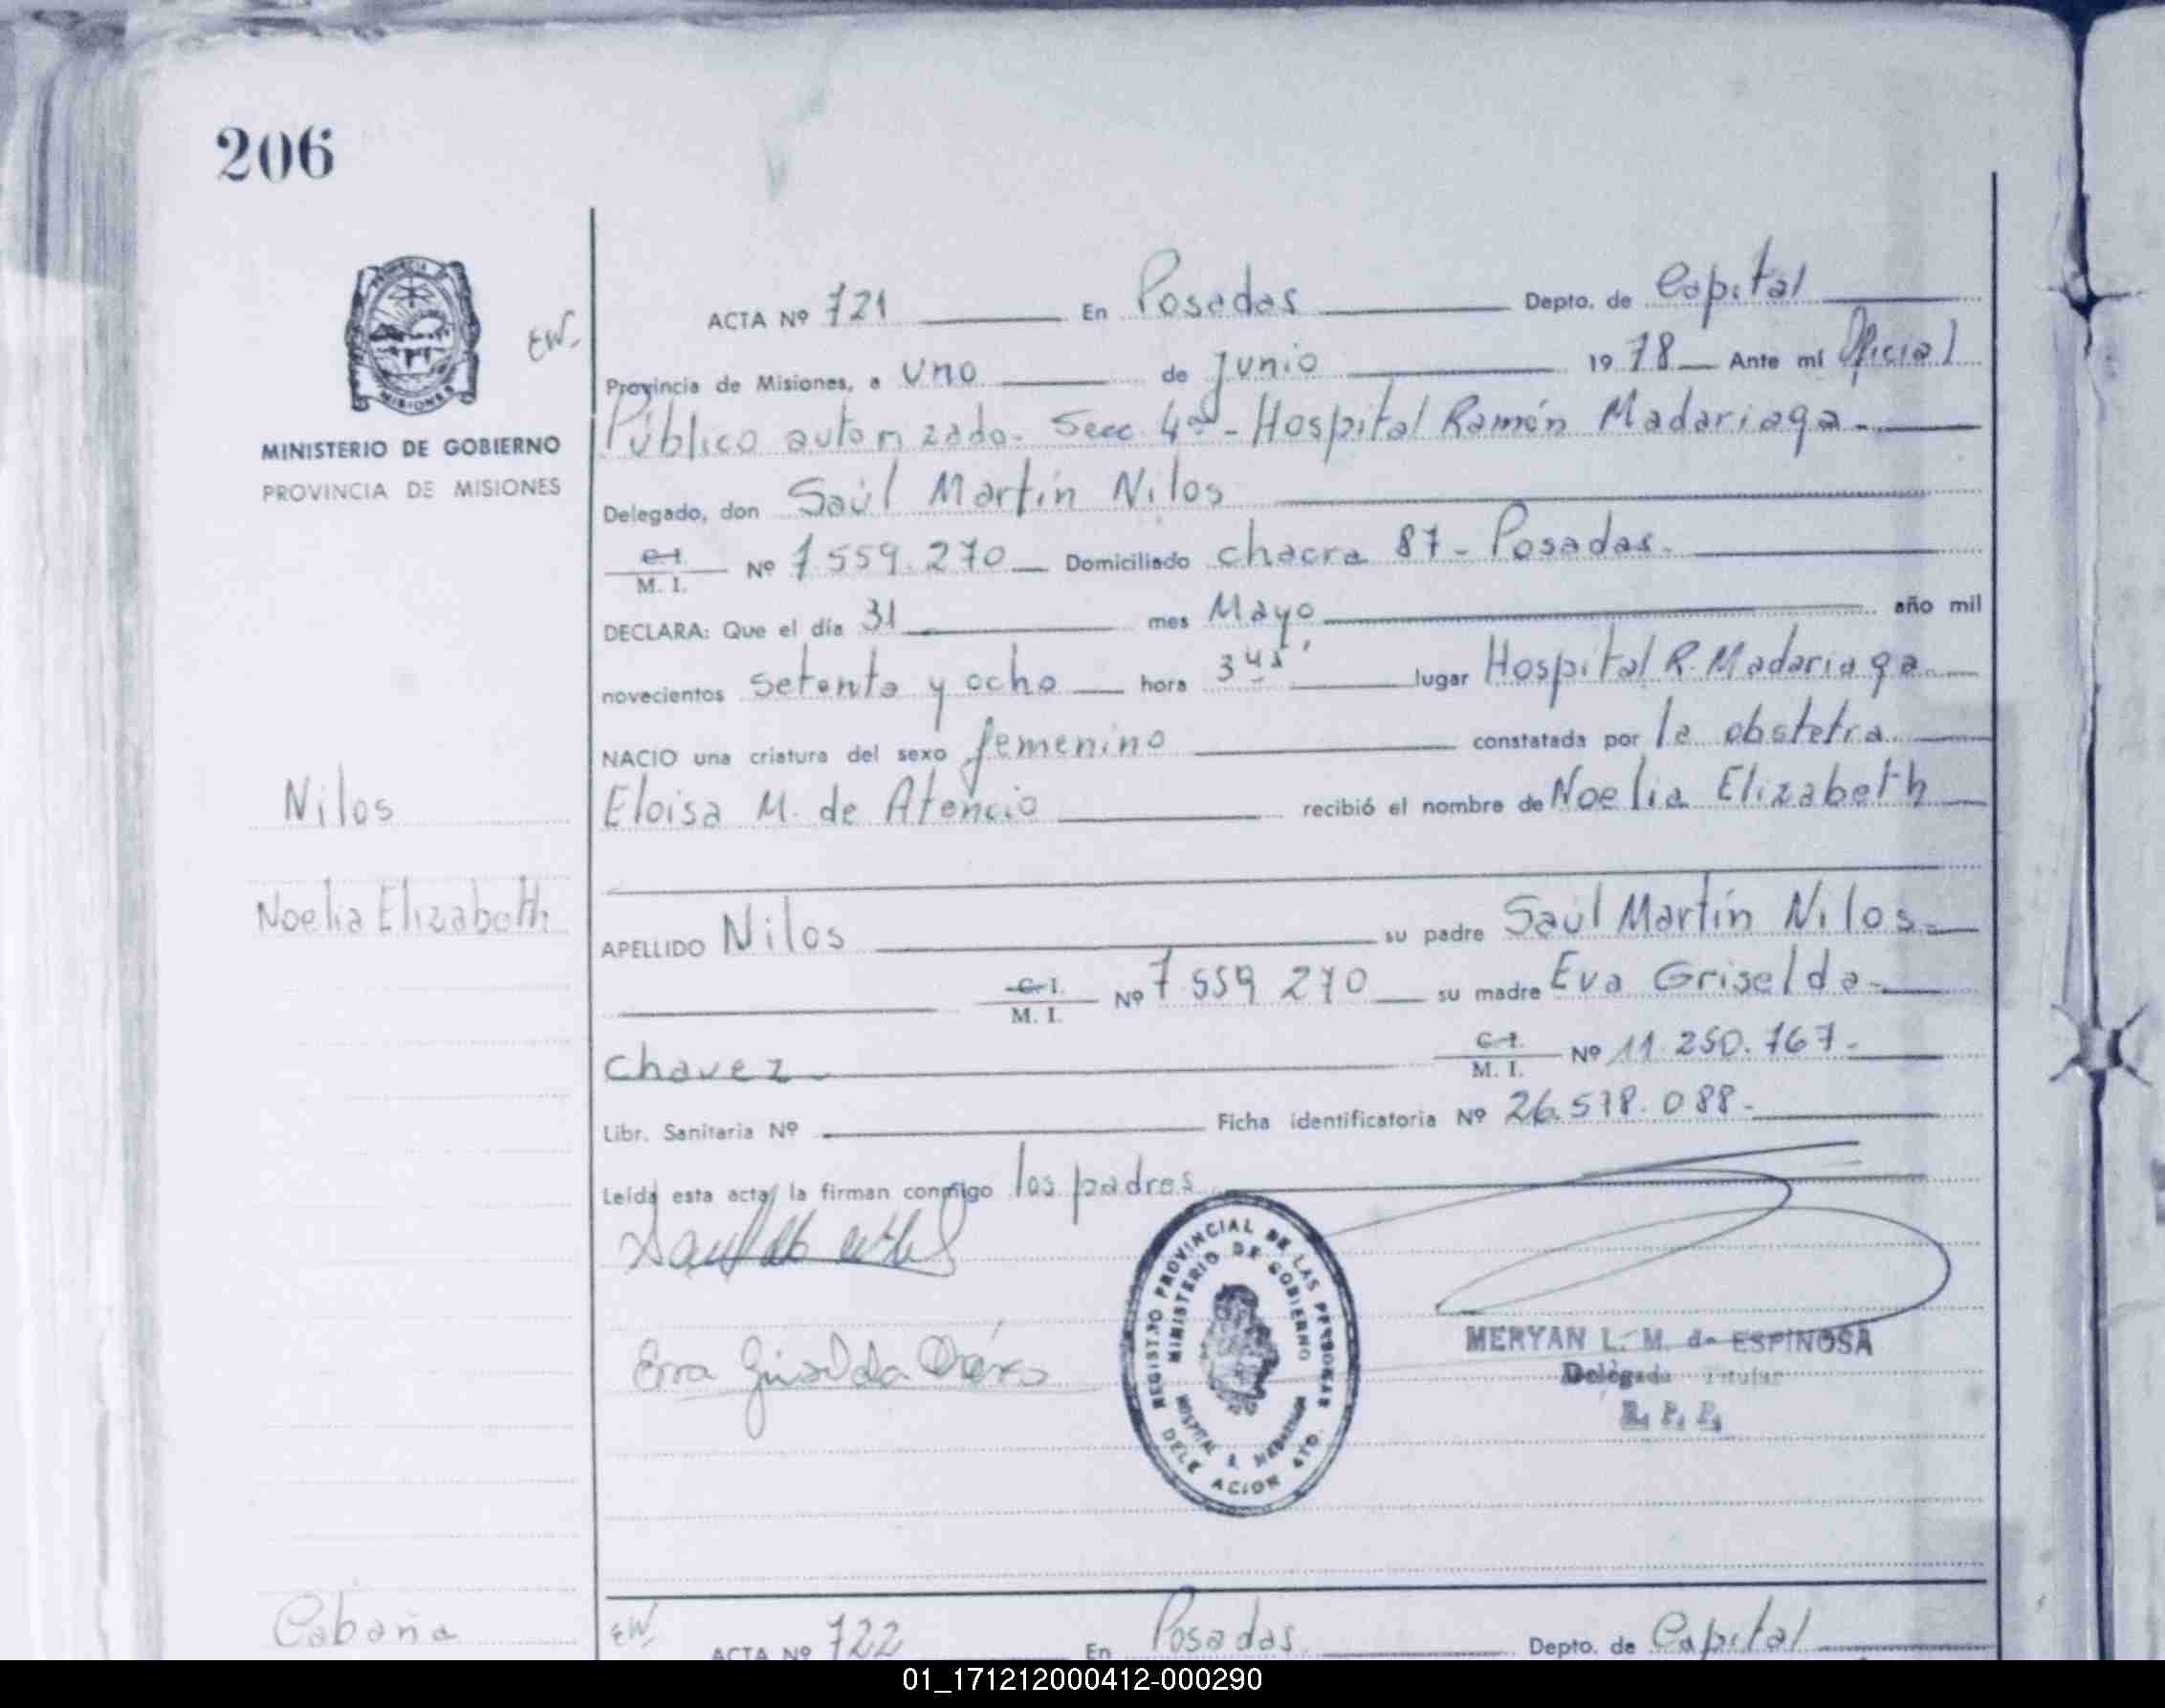 206
EW.
MINISTERIO DE GOBIERNO
PROVINCIA DE MISIONES
ACTA Nº 721 En Posadas Depto. de Capital
Provincia de Misiones, a uno de Junio 1978 Ante mí Oficial
Público autorizado. Secc. 4ª - Hospital Ramón Madariaga.
Delegado, don Saúl Martín Nilos
C. I. / M. I. Nº 7.559.270 Domiciliado chacra 87 - Posadas.
DECLARA: Que el día 31 mes Mayo año mil
novecientos setenta y ocho hora 3 45' lugar Hospital R. Madariaga
NACIO una criatura del sexo femenino constatada por la obstetra
Eloisa M. de Atencio recibió el nombre de Noelia Elizabeth
Nilos
Noelia Elizabeth
APELLIDO Nilos su padre Saúl Martín Nilos.
C. I. / M. I. Nº 7 559 270 su madre Eva Griselda
Chavez C. I. / M. I. Nº 11.250.767.
Libr. Sanitaria Nº Ficha identificatoria Nº 26.578.088.
Leída esta acta, la firman conmigo los padres
Eva Griselda Chávez
REGISTRO PROVINCIAL DE LAS PERSONAS
MINISTERIO DE GOBIERNO
HOSPITAL R. MADARIAGA
MERYAN L. M. de ESPINOSA
Delegada Titular
R. P. P.
Cabaña
EW.
ACTA Nº 722 En Posadas Depto. de Capital
01_171212000412-000290